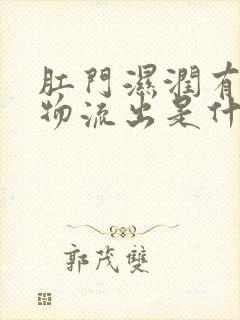 肛門濕潤有
物流出是什
郭茂雙